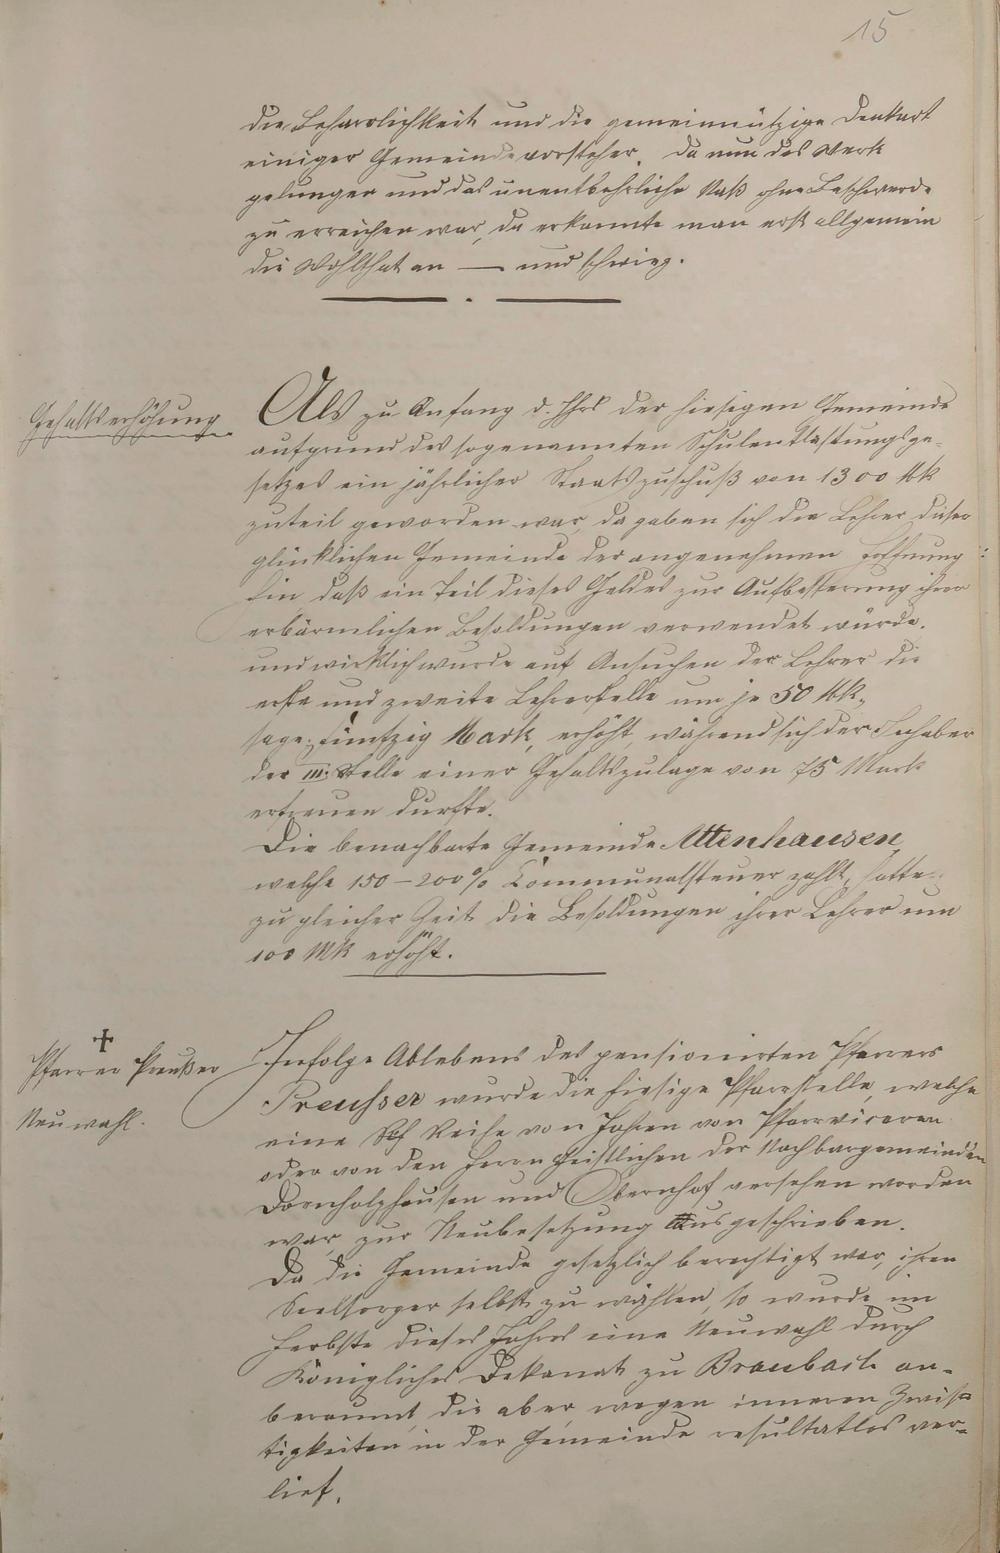 15
die Beharrlichkeit und die gemeinnützige Denkart
einiger Gemeindevorsteher. Da nun das Werk
gelungen und das unentbehrliche Naß ohne Beschwerde
zu erreichen war, da erkannte man erst allgemein
die Wohlthat an — und schwieg.
Gehaltserhöhung
Als zu Anfang d. Jhrs der hiesigen Gemeinde
aufgrund des sogenannten Schulentlastungsge-
setzes ein jährlicher Staatszuschuß von 1300 Mk
zuteil geworden war, da gaben sich die Lehrer dieser
glücklichen Gemeinde der angenehmen Hoffnung
hin, daß ein Teil dieses Geldes zur Aufbesserung ihrer
erbärmlichen Besoldungen verwendet würde.
und wirklich wurde auf Ansuchen der Lehrer die
erste und zweite Lehrerstelle um je 50 Mk,
sage: fünfzig Mark, erhöht, während sich der Inhaber
der III. Stelle einer Gehaltszulage von 75 Mark
erfreuen durfte.
Die benachbarte Gemeinde Attenhausen,
welche 150–200% Kommunalsteuer zahlt, hatte
zu gleicher Zeit die Besoldungen ihrer Lehrer um
100 Mk erhöht.
✝
Pfarrer Preußer
Neuwahl.
Infolge Ablebens des pensionierten Pfarrers
Preusser wurde die hiesige Pfarrstelle, welche
eine Reihe von Jahren von Pfarrvicaren
oder von den Herrn Geistlichen der Nachbargemeinden
Dornholzhausen und Obernhof versehen worden
war, zur Neubesetzung ausgeschrieben.
Da die Gemeinde gesetzlich berechtigt war, ihren
Seelsorger selbst zu wählen, so wurde im
Herbste dieses Jahres eine Neuwahl durch
Königliches Dekanat zu Braubach an-
beraumt, die aber, wegen inneren Zwis-
tigkeiten, in der Gemeinde resultatlos ver-
lief.